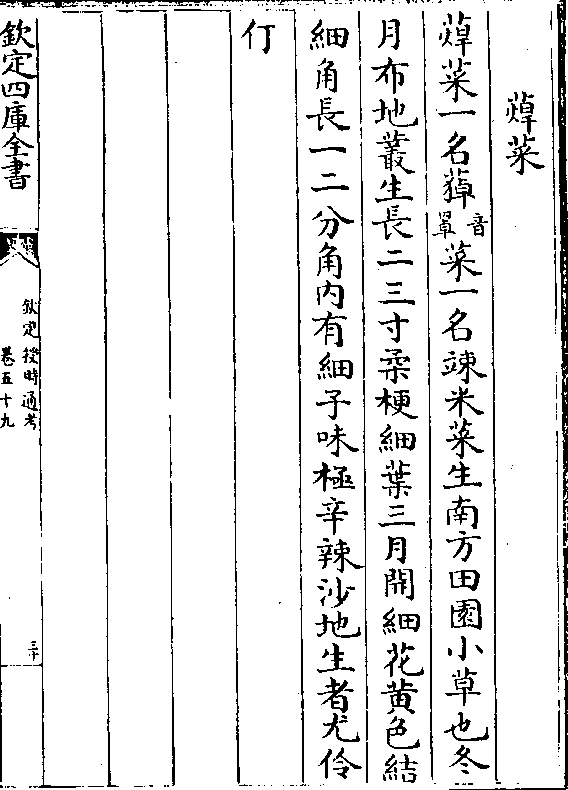 蔊菜
蔊菜一名䓬音罩菜一名竦米菜生南方田園小草也冬
月布地叢生長二三寸柔梗細葉三月開細花黃色結
細角長一二分角內有細子味極辛辣沙地生者尤伶
仃
欽定四庫全書
欽定授時通考
卷五十九
三十